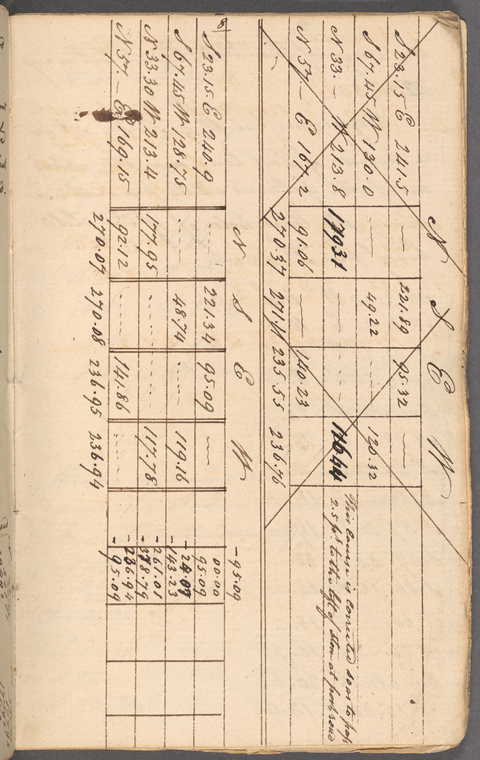 N S E W
S 23.15 E 241.5 — 221.89 95.32 —
S 67.45 W 130.0 — 49.22 --- 120.32
N 33. — W 213.8 179.31 — ---
This Course is corrected so as to pass
2.5 to the left of at
N 57. — E 167.2 91.06 — 140.23
270.37 271.11 235.55 236.76
N S E W
-95.09
S 23.15 E 240.9 --- 221.34 95.09 — 00.00
95.09
S 67.45 W 128.75 --- 48.74 --- 119.16 - 24.07
- 143.23
N 33.30 W 213.4 177.95 --- --- 117.78 - 261.01
- 378.79
N 57. — E 169.15 92.12 --- 141.86 --- - 236.94
- 95.09
270.07 270.08 236.95 236.94